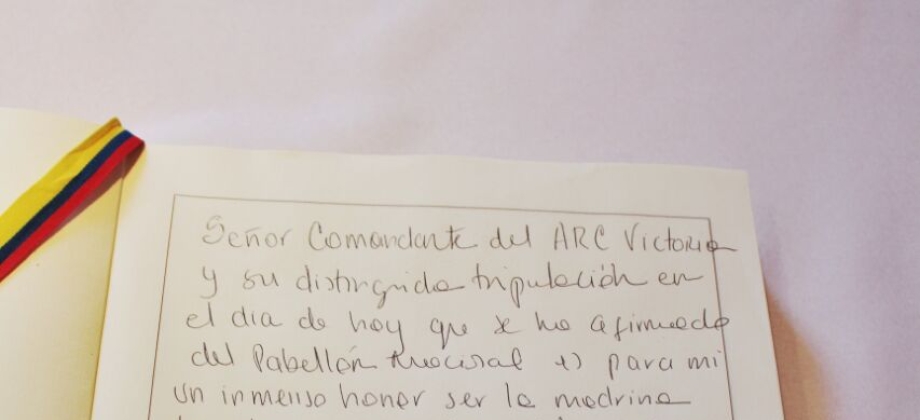 Señor Comandante del ARC Victoria
y su distinguida tripulación en
el dia de hoy que se ha afirmado
del Pabellón Nacional es para mi
un inmenso honor ser la madrina